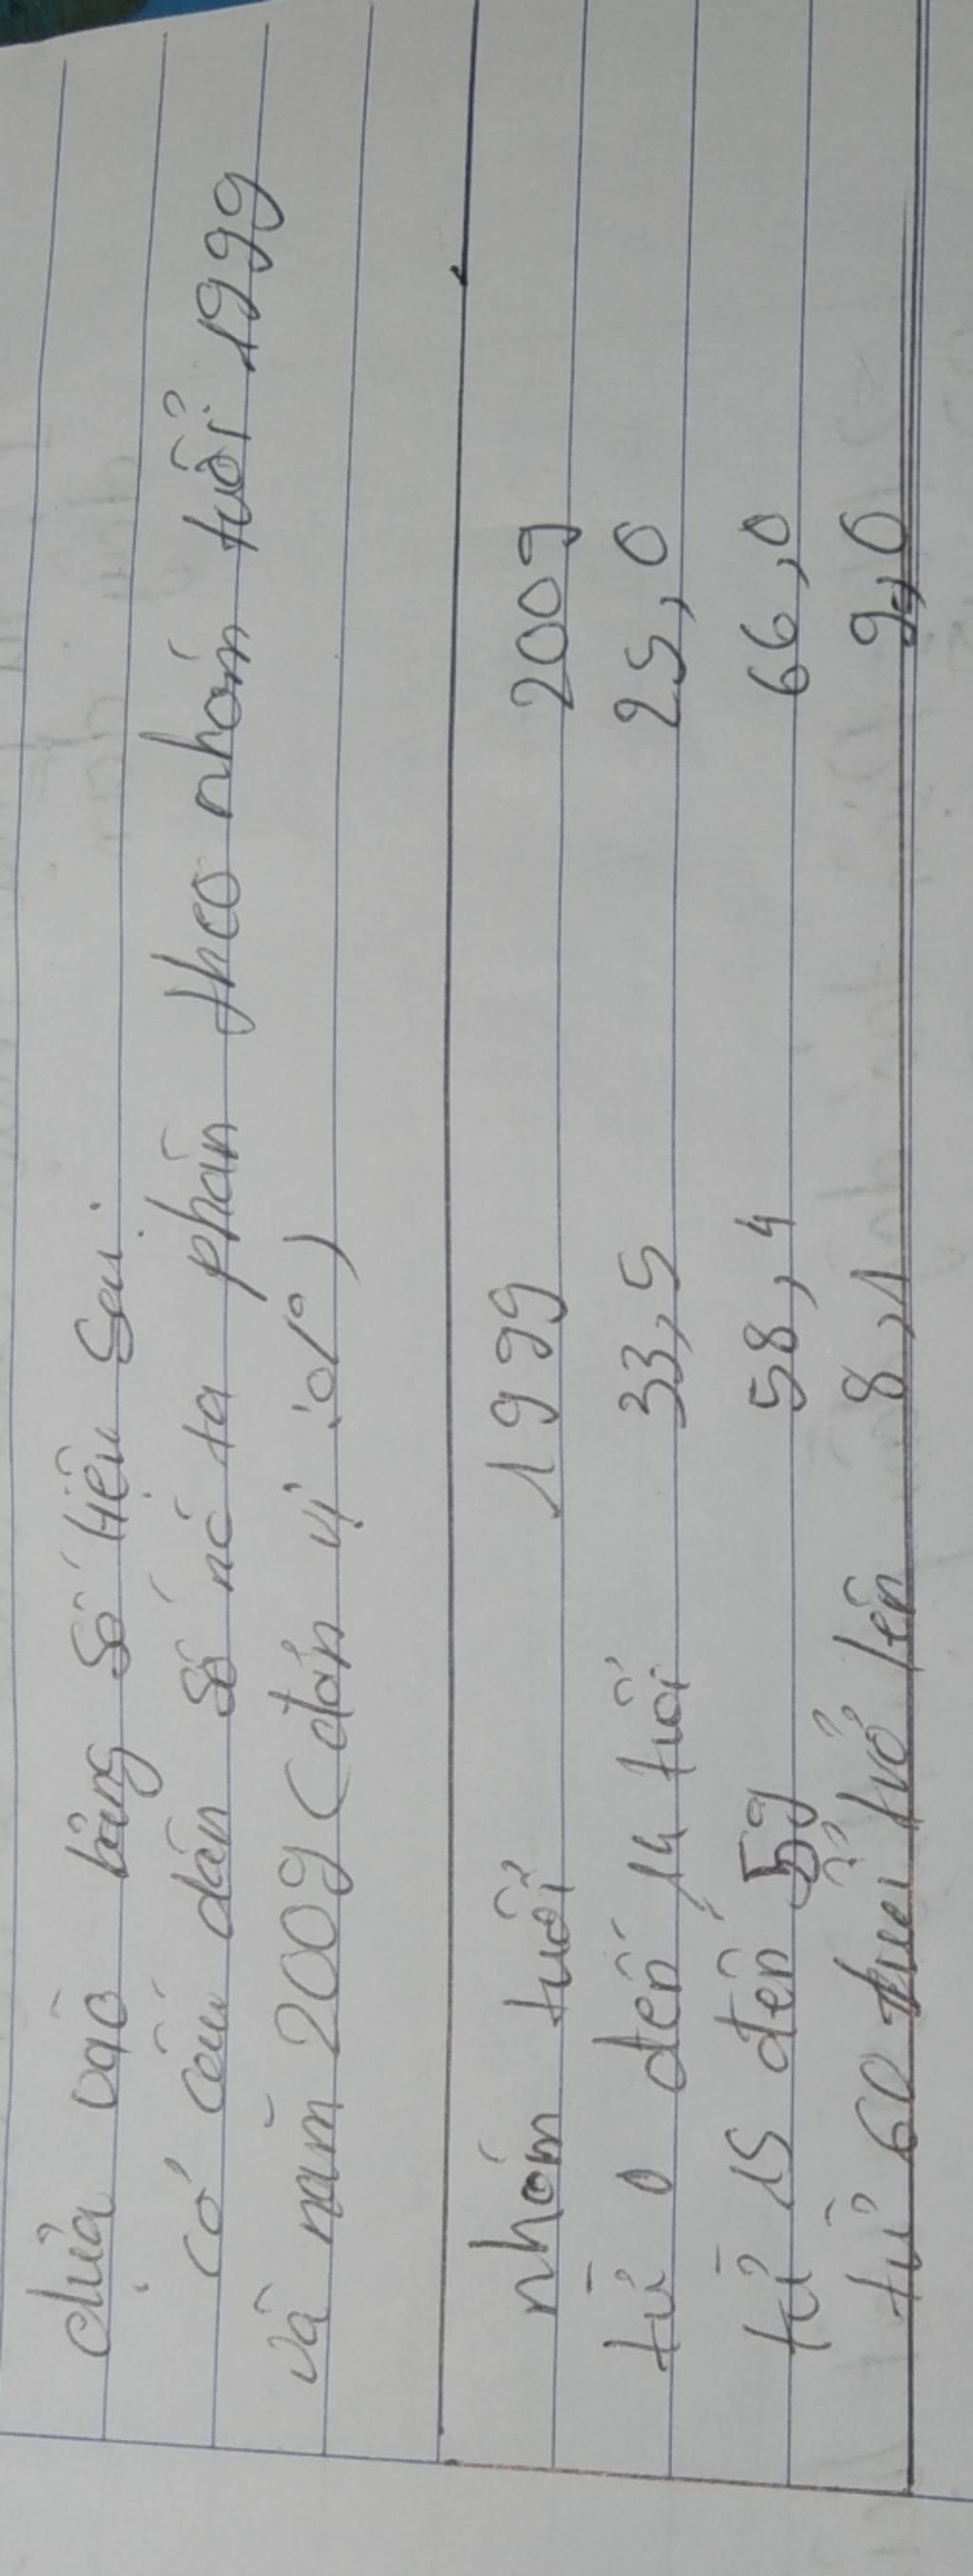 dựa vào bảng số liệu sau:
có cấu dân số nc ta phân theo nhóm tuổi 1999
và năm 2009 (đơn vị : %)
nhóm tuổi 1999 2009
từ 0 đến 14 tuổi 33,5 25,0
từ 15 đến 59 58,4 66,0
từ 60 tuổi trở lên 8,1 9,0